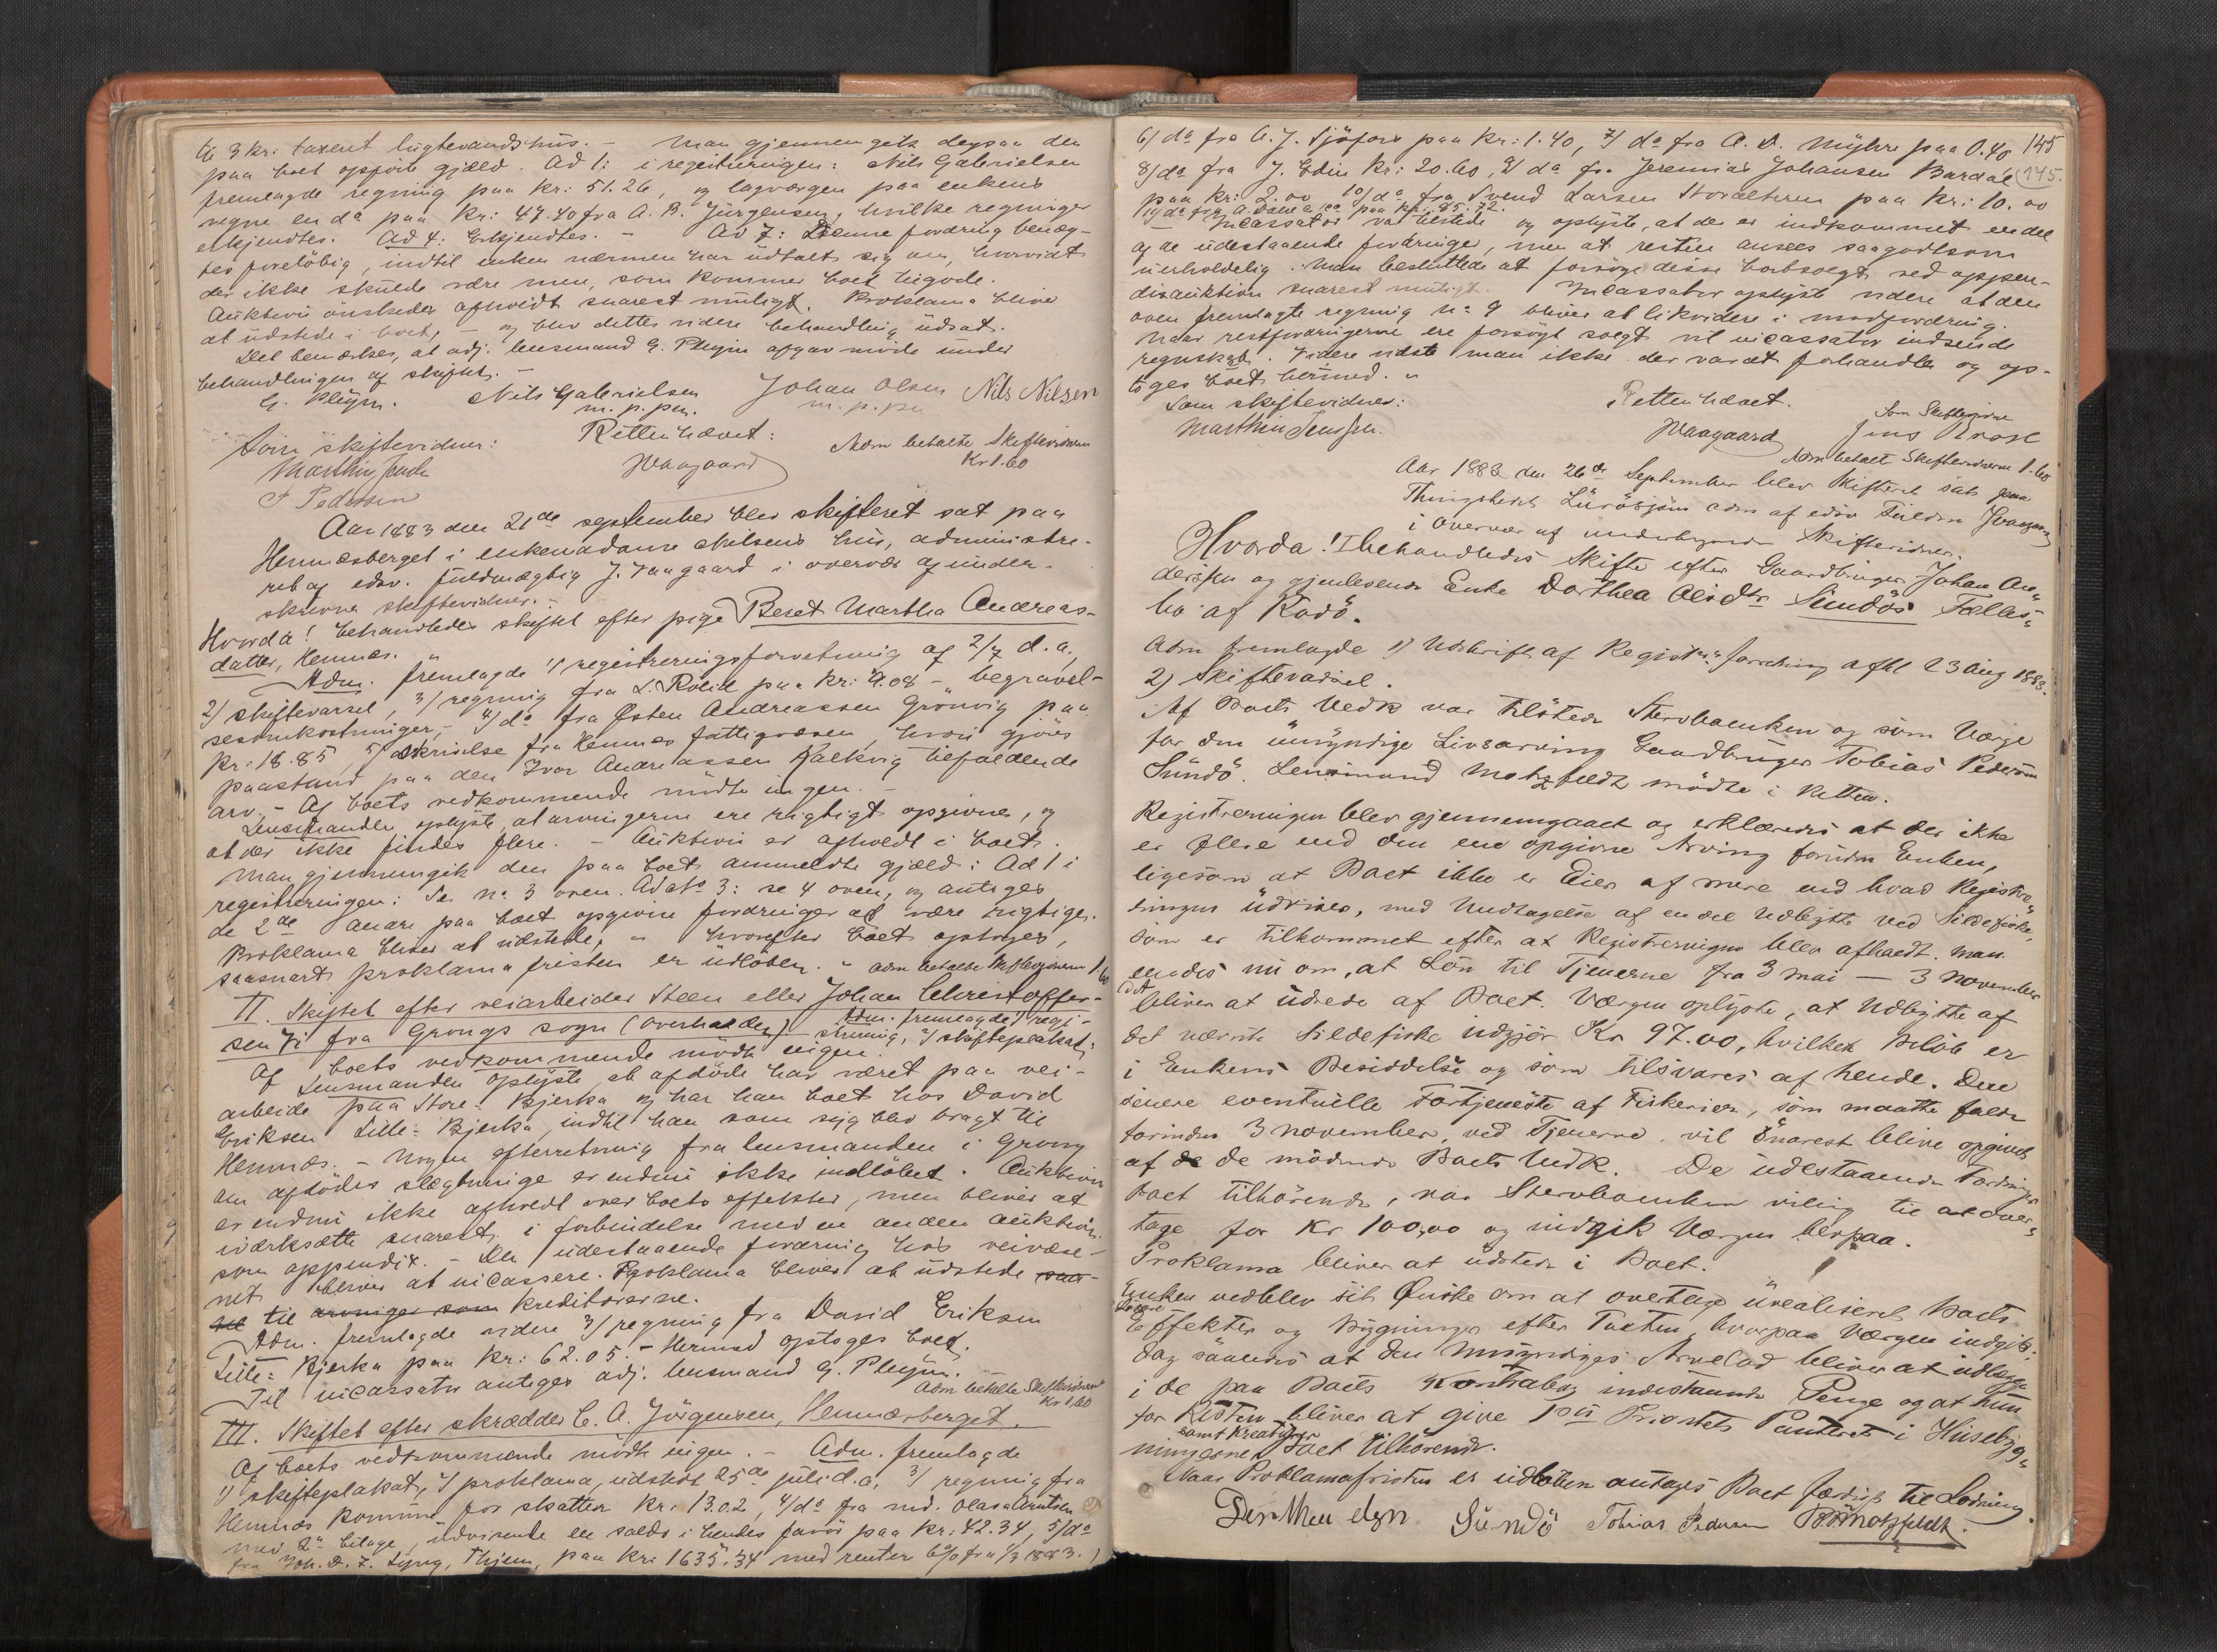 til 3 kr: taxeret lugtevandshus. – Man gjennemgik derpaa den
paa boet opförte gjæld. Ad 1: i registreringen: Nils Gabrielsen
fremlagde regning paa kr: 51.26, og lagværgen paa enkens
vegne en do paa kr: 47.40 fra A. B. Jürgensen, hvilke regninger
erkjendtes. Ad 4: Erkjendtes. – Ad 7: Denne fordring benæg-
tes foreløbig, indtil enken nærmere har udtalt sig om, hvorvidt
der ikke skulde være mere, som kommer boet tilgode.
Auktion önskedes afholdt snarest muligt. Proklama bliver
at udstede i boet, – og blev dettes videre behandling udsat.
Det bemærkes, at adj. lensmand G. Pleym afgav møde under
behandlingen af skiftet. –
G. Pleym. Nils Gabrielsen Johan Olsen Nils Nilsen
m. p. pen. m. p. pn
Som skiftevidner: Retten hævet: Adm betalte Skiftevidnerne
Marthin Jensen Waagaard Kr 1.60
P Pedersen
Aar 1883 den 21de september blev skifteret sat paa
Hemnæsberget i enkemadame Nelsens hus, administre-
ret af edsv. fuldmægtig J. Waagaard i overvær af under-
skrevne skiftevidner. –
Hvorda! behandledes skiftet efter pige Beret Martha Andreas-
datter, Hemnæs. "
Adm. fremlagde 1/ registreringsforretning af 2/7 d. a.,
2/ skiftevarsel, 3/ regning fra L. Rölid paa kr: 9.08 – begravel-
sesomkostninger, – 4/ do fra Østen Andreassen Grönvig paa
kr: 18.85, 5/ skrivelse fra Hemnes fattigvæsen, hvori gjöres
paastand paa den Ivar Andreassen Kalkvig tilfaldende
arv. – Af boets vedkommende mödte ingen. –
Lensmanden oplyste, at arvingerne ere rigtigt opgivne, og
at der ikke findes flere. – Auktion er afholdt i boet.
Man gjennemgik den paa boet anmeldte gjæld: Ad 1 i
registreringen: Se no 3 oven. Ad No 3: se 4 oven, og antoges
de 2de andre paa boet opgivne fordringer at være rigtige.
Proklama bliver at udstede, – hvorefter boet optoges,
saasnart proklamafristen er udlöben. " Adm betalte Skiftevidnerne 1.60
II. Skiftet efter veiarbeider Steen eller Johan Christoffer-
sen Ji fra Grongs sogn (Overhalden) – Adm. fremlagde 1/ regi-
strering, 2/ skifteplakat;
Af boets vedkommende mödte ingen.
Lensmanden oplyste at afdöde har været paa vei-
arbeide paa Store-Bjerka og har han boet hos David
Eriksen Lille-Bjerka, indtil han som syg blev bragt til
Hemnæs. – Nogen efterretning fra lensmanden i Grong
om afdödes slægtninge er endnu ikke indlöbet. Auktion
er endnu ikke afholdt over boets effekter, men bliver at
iværksætte snarest i forbindelse med en anden auktion
som appendix. – Den udestaaende fordring hos veivæse-
net bliver at incassere. Proklama bliver at udstede
til kreditorerne.
Adm. fremlagde videre 3/ regning fra David Eriksen
Lille-Bjerka paa kr: 62.05. – Hermed optoges boet.
Til incassator antoges adj. lensmand G. Pleym.
Adm betalte Skiftevidnerne
Kr 1.60
III. Skiftet efter skrædder C. A. Jörgensen, Hemnæsberget.
Af boets vedkommende mödte ingen. – Adm. fremlagde
1/ skifteplakat, 2/ proklama, udstedt 25de juli d. a., 3/ regning fra
Hemnæs kommune for skatter kr. 13.02, 4/ do fra md. Olava Arntsen
med 2 bilage, udvisende en saldo i hendes favör paa kr. 42.34, 5/ do
fra Joh. D. F. Lyng, Thjem, paa kr: 1635.34 med renter 6% fra 1/3 1883.
6/ do fra A. J. Sjöfors paa kr: 1.40, 7/ do fra A. D. Myhre paa 0.40 145
8/ do fra J. Edin kr: 20.60, 9/ do fra Jeremias Johansen Bardal 145.
paa kr: 2.00 10/ do fra Svend Larsen Storalteren paa kr: 10.00
11/ do fra A. Dahl & co paa kr: 85.72.
Incassator var tilstede og oplyste, at der er indkommet en del
af de udestaaende fordringer, men at resten ansees saagodtsom
uerholdelig. Man besluttede at forsöge disse bortsolgt ved appen-
dixauktion snarest muligt. Incassator oplyste videre at den
oven fremlagte regning no 9 bliver at likvidere i modfordring.
Naar restfordringerne ere forsögt solgt vil incassator indsende
regnskab. Videre vidste man ikke der var at forhandle og op-
toges boet hermed. "
Som skiftevidner: Retten hævet. Som Skiftevidne
Marthin Jensen. Waagaard Jens Brose
Adm betalt Skiftevidnerne 1.60
Aar 1883 den 26de September blev Skifteret sat paa
Thingstedet Luröstjöen adm af edsv Fuldm Jvaagaard
i Overvær af undertegnede Skiftevidner.
Hvorda! I behandledes Skifte efter Gaardbruger Johan An-
dersen og gjenlevende Enke Dorthea Alsdtr Sundös Fælles-
bo af Rödö.
Adm fremlagde 1) Udskrift af Registrs forretning afhl 23 Aug 1883.
2) Skiftevadsel.
Af Boets Vedk var tilstede Stervboenken og som Værge
for den umyndige Livsarving Gaardbruger Tobias Pedersen
Sundö. Lensmand Motzfeldt mödte i Retten.
Registreringen blev gjennemgaaet og erklæredes at der ikke
er flere end den ene opgivne Arving foruden Enken,
ligesom at Boet ikke er Eier af mere end hvad Registre-
ringen udviser, med Undtagelse af en del Udbytte ved Sildefiske,
som er tilkommet efter at Registreringen blev afholdt. Man
enedes nu om, at Lön til Tjenerne fra 3 mai – 3 November
dA bliver at udrede af Boet. Værgen oplyste, at Udbytte af
det nævnte Sildefiske udgjör Kr 97.00, hvilket Belöb er
i Enkens Besiddelse og som tilsvares af hende. Den
senere eventuelle Fortjeneste af Fiskerier, som maatte falde
forinden 3 November, ved Tjenerne, vil snarest blive opgivet
af de mödende Boets Vedk. De udestaaende Fordringer
Boet tilhörende, var Stervboenken villig til at over-
tage for Kr 100,00 og indgik Værgen herpaa.
Proklama bliver at udstede i Boet.
Enken vedblev sit Ønske om at overtage urealiseret Boets
Løsøre
Effekter og Bygninger efter Taxten, hvorpaa Værgen indgik,
dog saaledes at den Umyndiges Arvelod bliver at udlægge
i de paa Boets Kontrabog indestaaende Penge og at hun
for Resten bliver at give 1ste Prioritets Panteret i Husebyg-
samt Kreaturer
ningerne Boet tilhörende.
Naar Proklamafristen er udlöben antages Boet færdigt til Lodning.
Sundö Tobias Pedersen Motzfeldt.